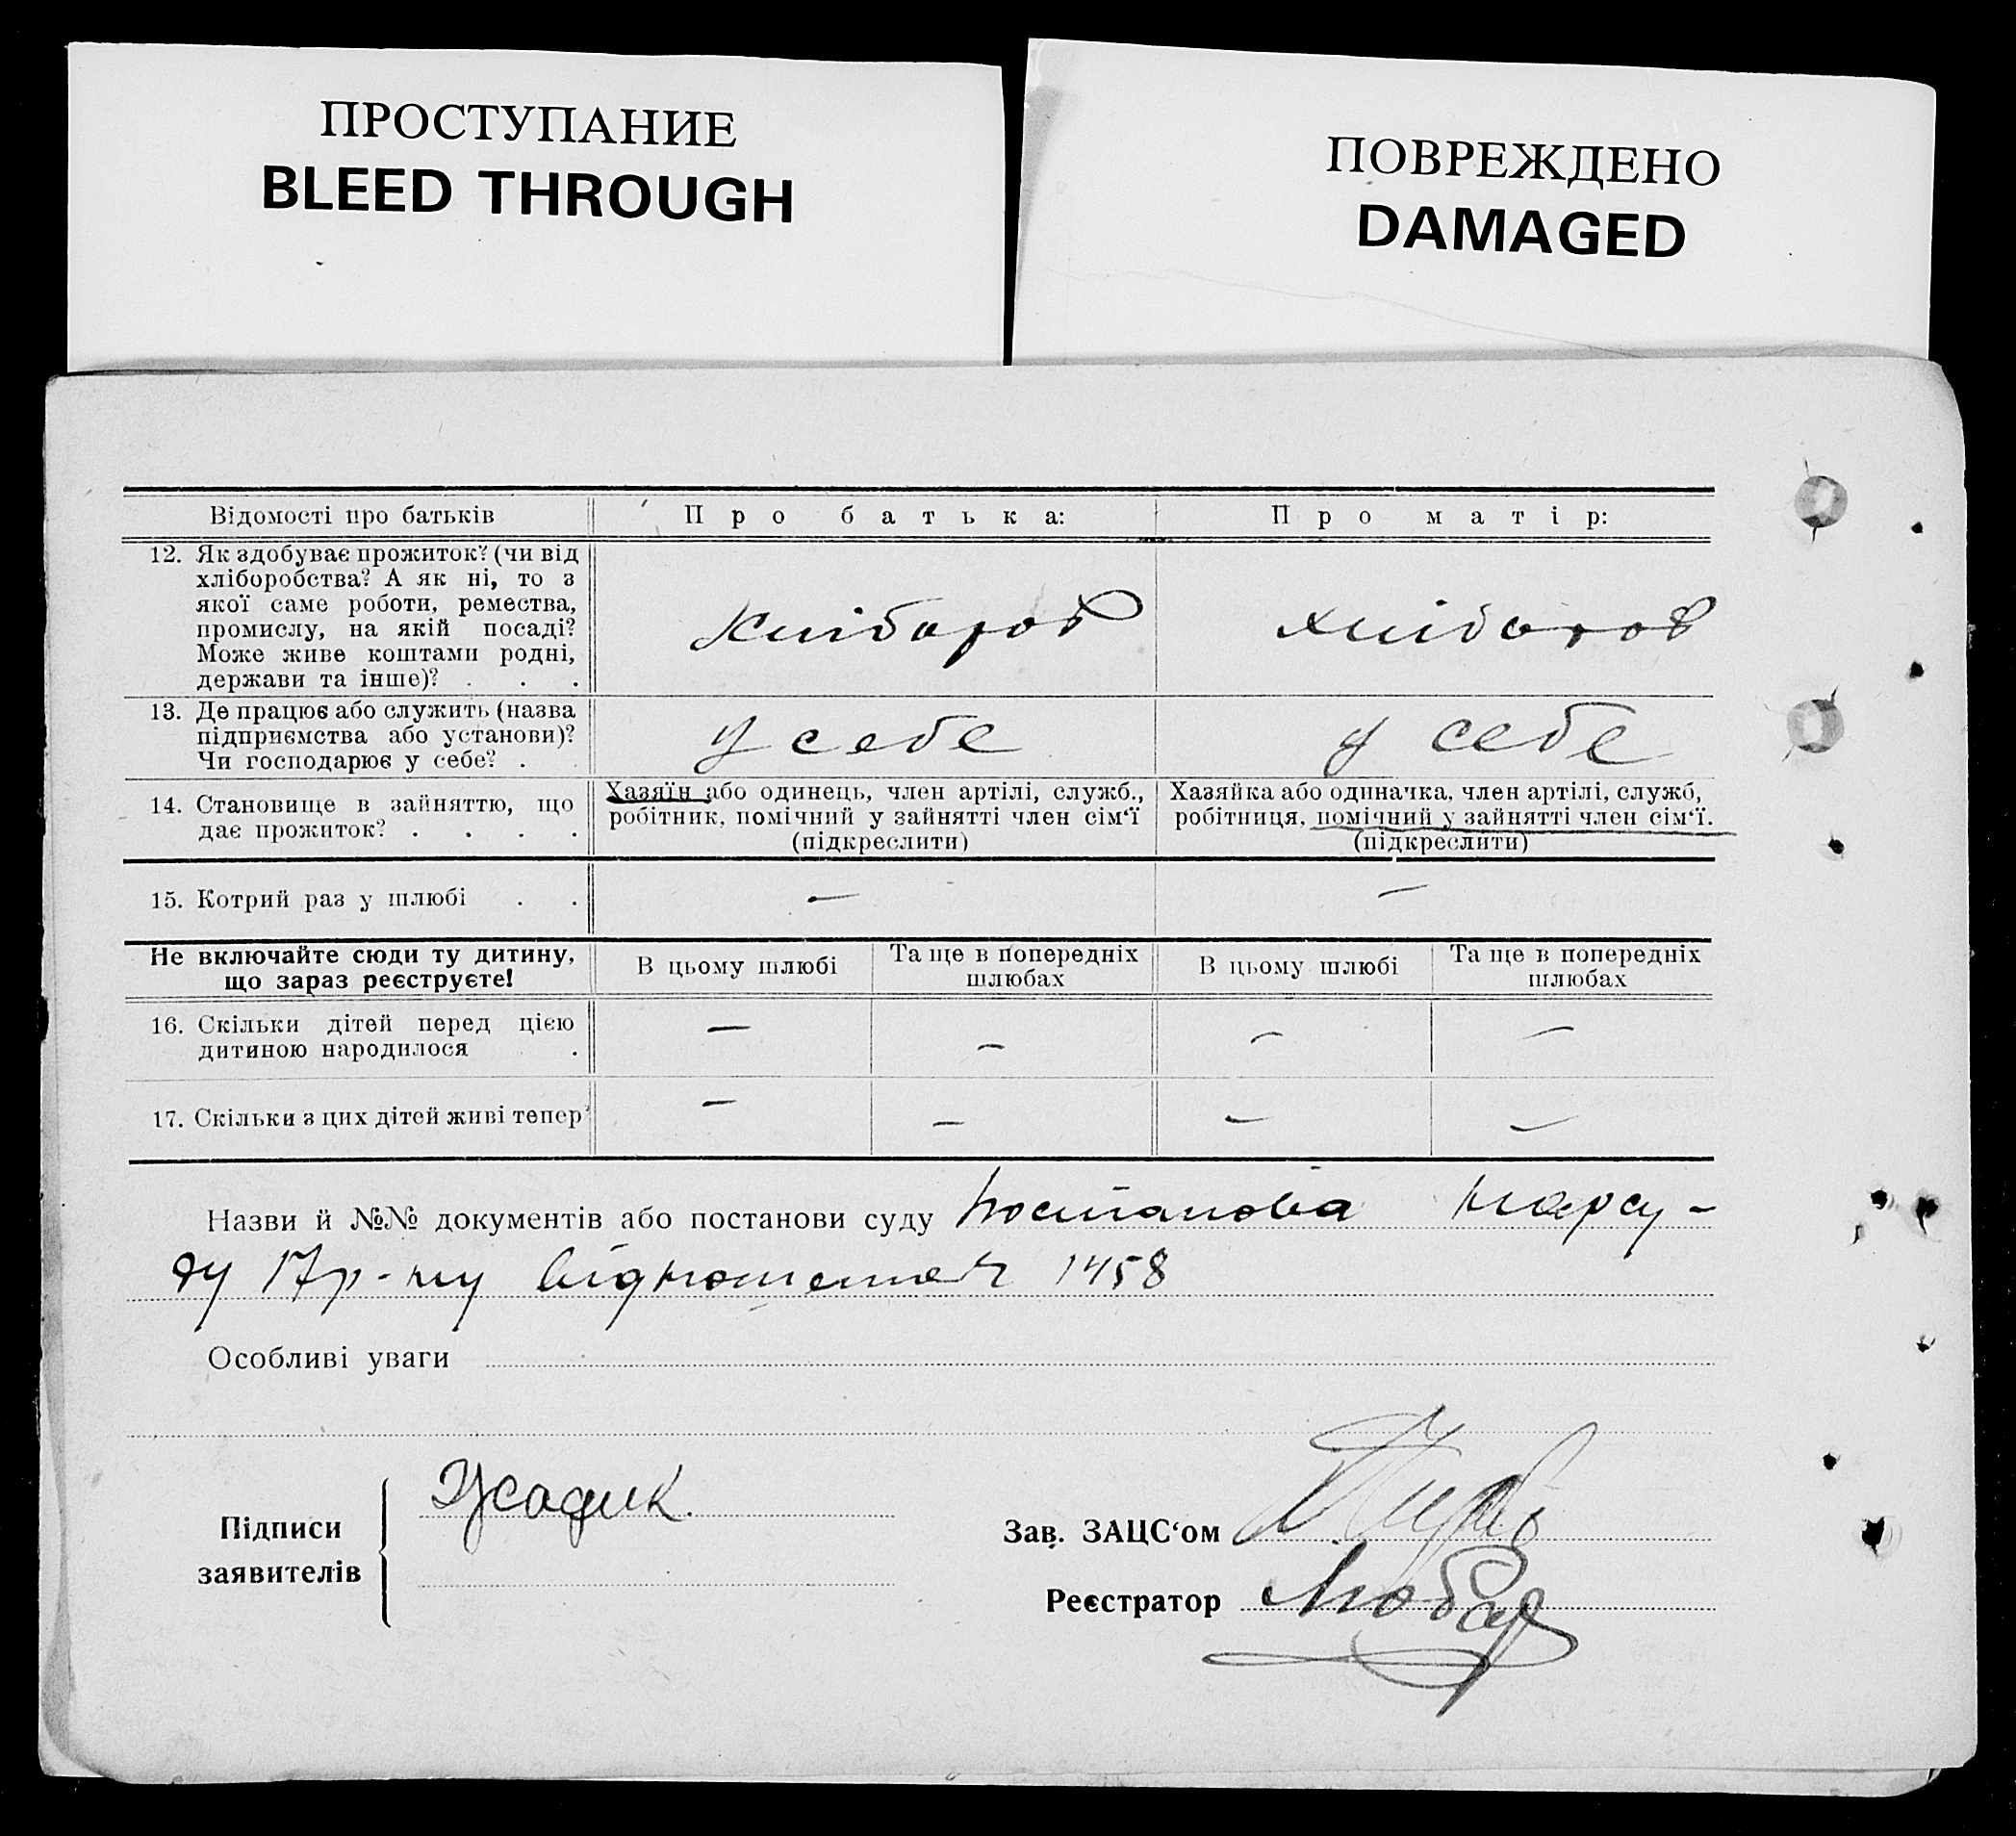 ПРОСТУПАНИЕ
BLEED THROUGH
ПОВРЕЖДЕНО
DAMAGED
Відомості про батьків
Про батька:
Про матір:
12. Як здобуває прожиток? (чи від
хліборобства? А як ні, то з
якої саме роботи, ремества,
промислу, на якій посаді?
Може живе коштами родні,
держави та інше)? . . .
хлібороб
хлібороб
13. Де працює або служить (назва
підприємства або установи)?
Чи господарює у себе? .
у себе
у себе
14. Становище в зайняттю, що
дає прожиток? . . . .
Хазяїн або одинець, член артілі, служб.,
робітник, помічний у зайнятті член сім‘ї
(підкреслити)
Хазяйка або одиначка, член артілі, служб,
робітниця, помічний у зайнятті член сім‘ї.
(підкреслити)
15. Котрий раз у шлюбі . .
—
—
Не включайте сюди ту дитину,
що зараз реєструєте!
В цьому шлюбі
Та ще в попередніх
шлюбах
В цьому шлюбі
Та ще в попередніх
шлюбах
16. Скільки дітей перед цією
дитиною народилося .
— — — —
17. Скільки з цих дітей живі тепер?
— — — —
Назви й №№ документів або постанови суду Постанова нарсу-
ду 17 р-ну 1458
Особливі уваги
Підписи
заявителів
Усадик.
Зав. ЗАЦС‘ом
Реєстратор